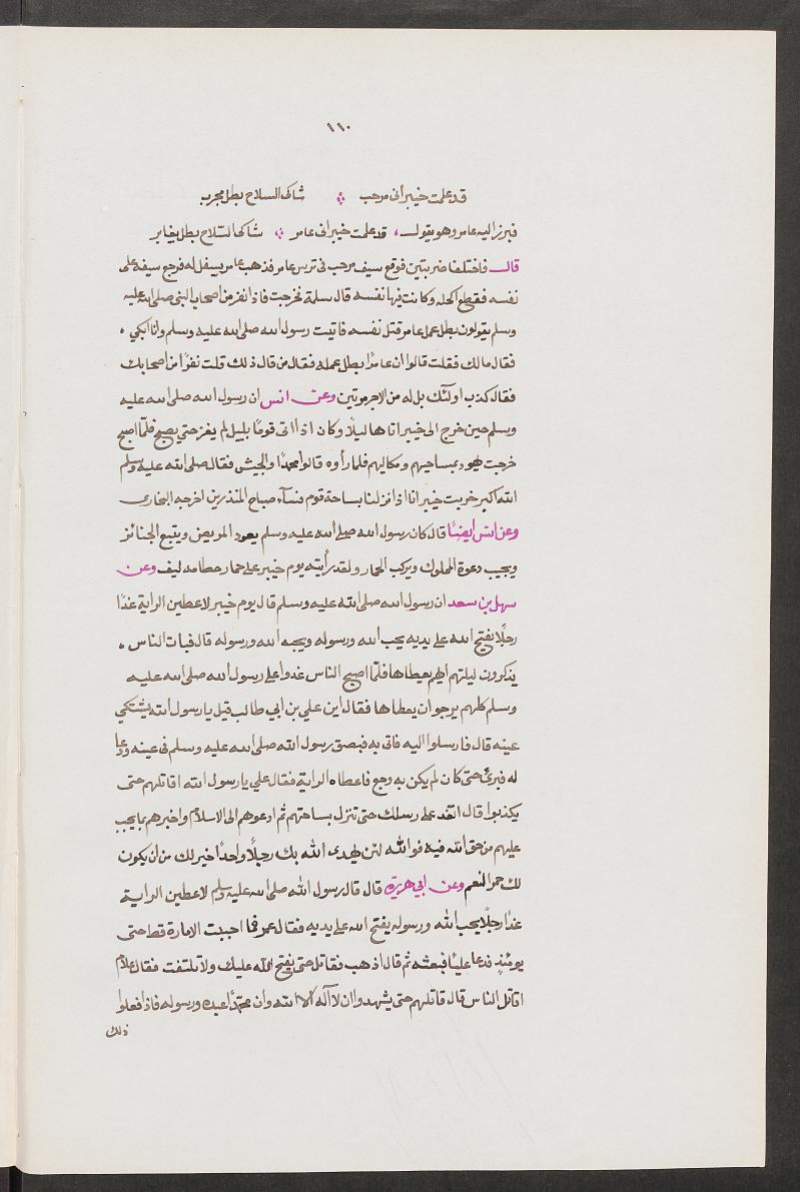 ١١٠
قد علمت خيبر أنى مرحب ؞ شاكى السلاح بطل مجرب
فبرز اليه عامر وهو يقول ، قد علمت خيبر انى عامر ؞ شاكى السّلاح بطل يغابر
قال فاختلفا ضربتين فوقع سيف مرحب فى ترس عامر فذهب عامر يسفل له فرجع سيفه على
نفسه فقطع اكحله وكانت فيها نفسه قال سلمة نخرجت فاذا نفر من اصحاب النبى صلى الله عليه
وسلم يقولون بطل عمل عامر قتل نفسه فاتيت رسول الله صلى الله عليه وسلم وانا ابكي ،
فقال مالك فقلت قالوا ان عامرًا بطل عمله فقال من قال ذلك قلت نفرًا من اصحابك
فقال كذب اولئك بل له من الاجر مرتين وعن انس ان رسول الله صلى الله عليه
وسلم حين خرج الى خيبر اتاها ليلًا وكان اذا اتى قومًا بليل لم يغز حتى يصبح فلمّا اصبح
خرجت يهود بمساحيهم ومكاتلهم فلما رأوه قالوا محمدًا والجيش فقال صلى الله عليه وسلم
الله اكبر خربت خيبر انا اذا نزلنا بساحة قوم فسآء صباح المنذرين اخرجه البخارى
وعن انس ايضًا قال كان رسول الله صلى الله عليه وسلم يعود المريض ويتبع الجنائز
ويجيب دعوة المملوك ويركب الحمار ولقد رأيته يوم خيبر على حمار خطامه ليف وعن
سهل بن سعد ان رسول الله صلى الله عليه وسلم قال يوم خيبر لاعطين الراية غدًا
رجلًا يفتح الله على يديه يحب الله ورسوله ويحبه الله ورسوله قال فبات الناس ،
يذكرون ليلتهم ايهم يعطاها فلمّا اصبح الناس غدوا على رسول الله صلى الله عليه
وسلم كلهم يرجو ان يعطاها فقال اين علي بن ابي طالب قيل يا رسول الله يشتكي
عينه قال فارسلوا اليه فاتى به فبصق رسول الله صلى الله عليه وسلم فى عينه ودعا
له فبرئ حتى كان لم يكن به وجع فاعطاه الراية فقال علي يا رسول الله اقاتلهم حتى
يكونوا قال انفذ على رسلك حتى تنزل بساحتهم ثم ادعوهم الى الاسلام واخبرهم بما يجب
عليهم من حق الله فيه فوالله لئن يهدى الله بك رجلًا واحدًا خير لك من ان يكون
لك حمر النعم وعن ابي هريرة قال قال رسول الله صلى الله عليه وسلم لاعطين الراية
غدًا رجلًا يحب الله ورسوله يفتح الله على يديه فقال عمر فما احببت الامارة قط حتى
يومئذٍ فدعا عليًا فبعثه ثم قال اذهب فقاتل حتى يفتح الله عليك ولا تلتفت فقال علام
اقاتل الناس قال قاتلهم حتى يشهدوا ان لا آله الا الله وان محمّدًا عبده ورسوله فاذا فعلوا
ذلك